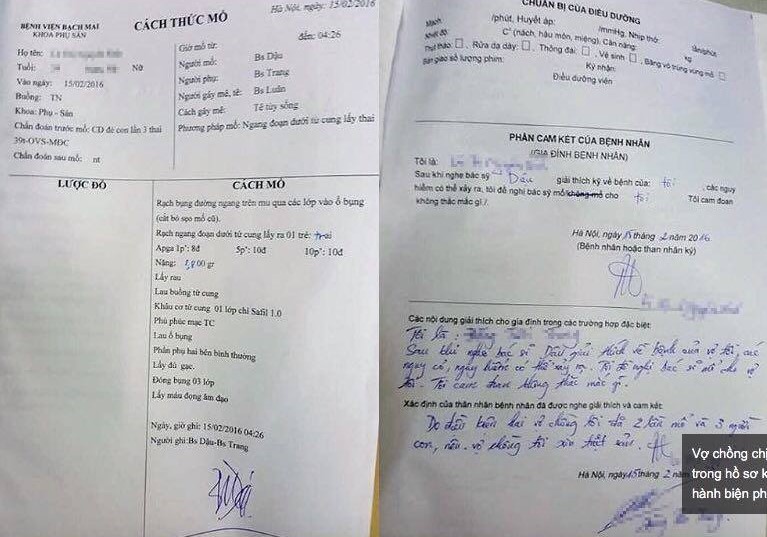 Hà Nội, ngày: 15/02/2016
BỆNH VIỆN BẠCH MAI
KHOA PHỤ SẢN
CÁCH THỨC MỔ
đến: 04:26
Họ tên:
Tuổi: Nữ
Vào ngày: 15/02/2016
Buồng: TN
Khoa: Phụ - Sản
Chẩn đoán trước mổ: CD đẻ con lần 3 thai
39t-OVS-MĐC
Chẩn đoán sau mổ: nt
Giờ mổ từ:
Người mổ: Bs Dậu
Người phụ: Bs Trang
Người gây mê, tê: Bs Luân
Cách gây mê: Tê tủy sống
Phương pháp mổ: Ngang đoạn dưới tử cung lấy thai
LƯỢC ĐỒ
CÁCH MỔ
Rạch bụng đường ngang trên mu qua các lớp vào ổ bụng
(cắt bỏ sẹo mổ cũ).
Rạch ngang đoạn dưới tử cung lấy ra 01 trẻ: trai
Apga 1p': 8đ 5p': 10đ 10p': 10đ
Nặng: 800 gr
Lấy rau
Lau buồng tử cung
Khâu cơ tử cung 01 lớp chỉ Safil 1.0
Phủ phúc mạc TC
Lau ổ bụng
Phần phụ hai bên bình thường
Lấy đủ gạc.
Đóng bụng 03 lớp
Lấy máu đọng âm đạo
Ngày, giờ ghi: 15/02/2016 04:26
Người ghi:Bs Dậu-Bs Trang
CHUẨN BỊ CỦA ĐIỀU DƯỠNG
Mạch /phút, Huyết áp: /mmHg, Nhịp thở: lần/phút
Nhiệt độ: C° (nách, hậu môn, miệng). Cân nặng: kg
Thụt tháo: Rửa dạ dày: Thông đái: Vệ sinh Băng vô trùng vùng mổ
Bàn giao số lượng phim: Ký nhận:
Điều dưỡng viên
PHẦN CAM KẾT CỦA BỆNH NHÂN
(GIA ĐÌNH BỆNH NHÂN)
Tôi là:
Sau khi nghe bác sỹ Dậu giải thích kỹ về bệnh của: tôi , các nguy
hiểm có thể xảy ra, tôi đề nghị bác sỹ mổ/không mổ cho tôi Tôi cam đoan
không thắc mắc gì /.
Hà Nội, ngày 15 tháng 2 năm 2016
(Bệnh nhân hoặc than nhân ký)
Các nội dung giải thích cho gia đình trong các trường hợp đặc biệt:
Tôi là:
Sau khi nghe bác sĩ Dậu giải thích về bệnh của vợ tôi, các
nguy cơ, nguy hiểm có thể xảy ra. Tôi đề nghị bác sĩ mổ cho vợ
tôi. Tôi cam đoan không thắc mắc gì.
Xác định của thân nhân bệnh nhân đã được nghe giải thích và cam kết:
Do điều kiện hai vợ chồng tôi đã 2 lần mổ và 3 người
con, nên vợ chồng tôi xin triệt sản.
Hà Nội, ngày 15 tháng 2
Vợ chồng chị
trong hồ sơ k
hành biện ph